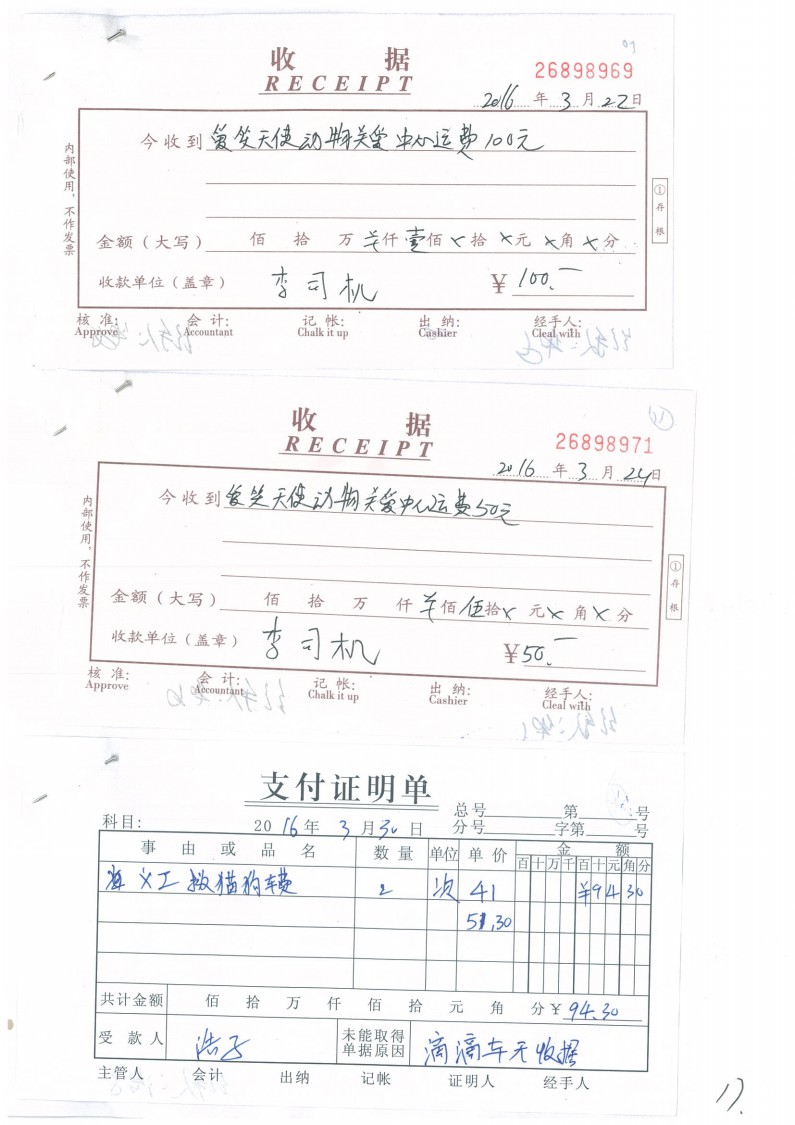 收 据
RECEIPT
26898969
2016 年 3 月 22 日
今收到 爱笑天使动物关爱中心运费100元
金额(大写) 佰 拾 万 仟 壹 佰 × 拾 × 元 × 角 × 分
收款单位(盖章) 李司机 ¥ 100.—
核 准: 会 计: 记 帐: 出 纳: 经手人:
Approve Accountant Chalk it up Cashier Cleal with
内部使用,不作发票
① 存 根
收 据
RECEIPT
26898971
2016 年 3 月 24 日
今收到 爱笑天使动物关爱中心运费50元
金额(大写) 佰 拾 万 仟 佰 伍 拾 × 元 × 角 × 分
收款单位(盖章) 李司机 ¥ 50.—
核 准: 会 计: 记 帐: 出 纳: 经手人:
Approve Accountant Chalk it up Cashier Cleal with
内部使用,不作发票
① 存 根
支付证明单
总号 第 号
科目: 2016 年 3 月 30 日 分号 字第 号
事 由 或 品 名 数 量 单位 单 价 金 额
百 十 万 千 百 十 元 角 分
义工救猫狗车费 2 次 41 ¥94 30
51.30
共计金额 佰 拾 万 仟 佰 拾 元 角 分 ¥ 94.30
受 款 人 浩子 未能取得单据原因 滴滴车无收据
主管人 会计 出纳 记帐 证明人 经手人
17.